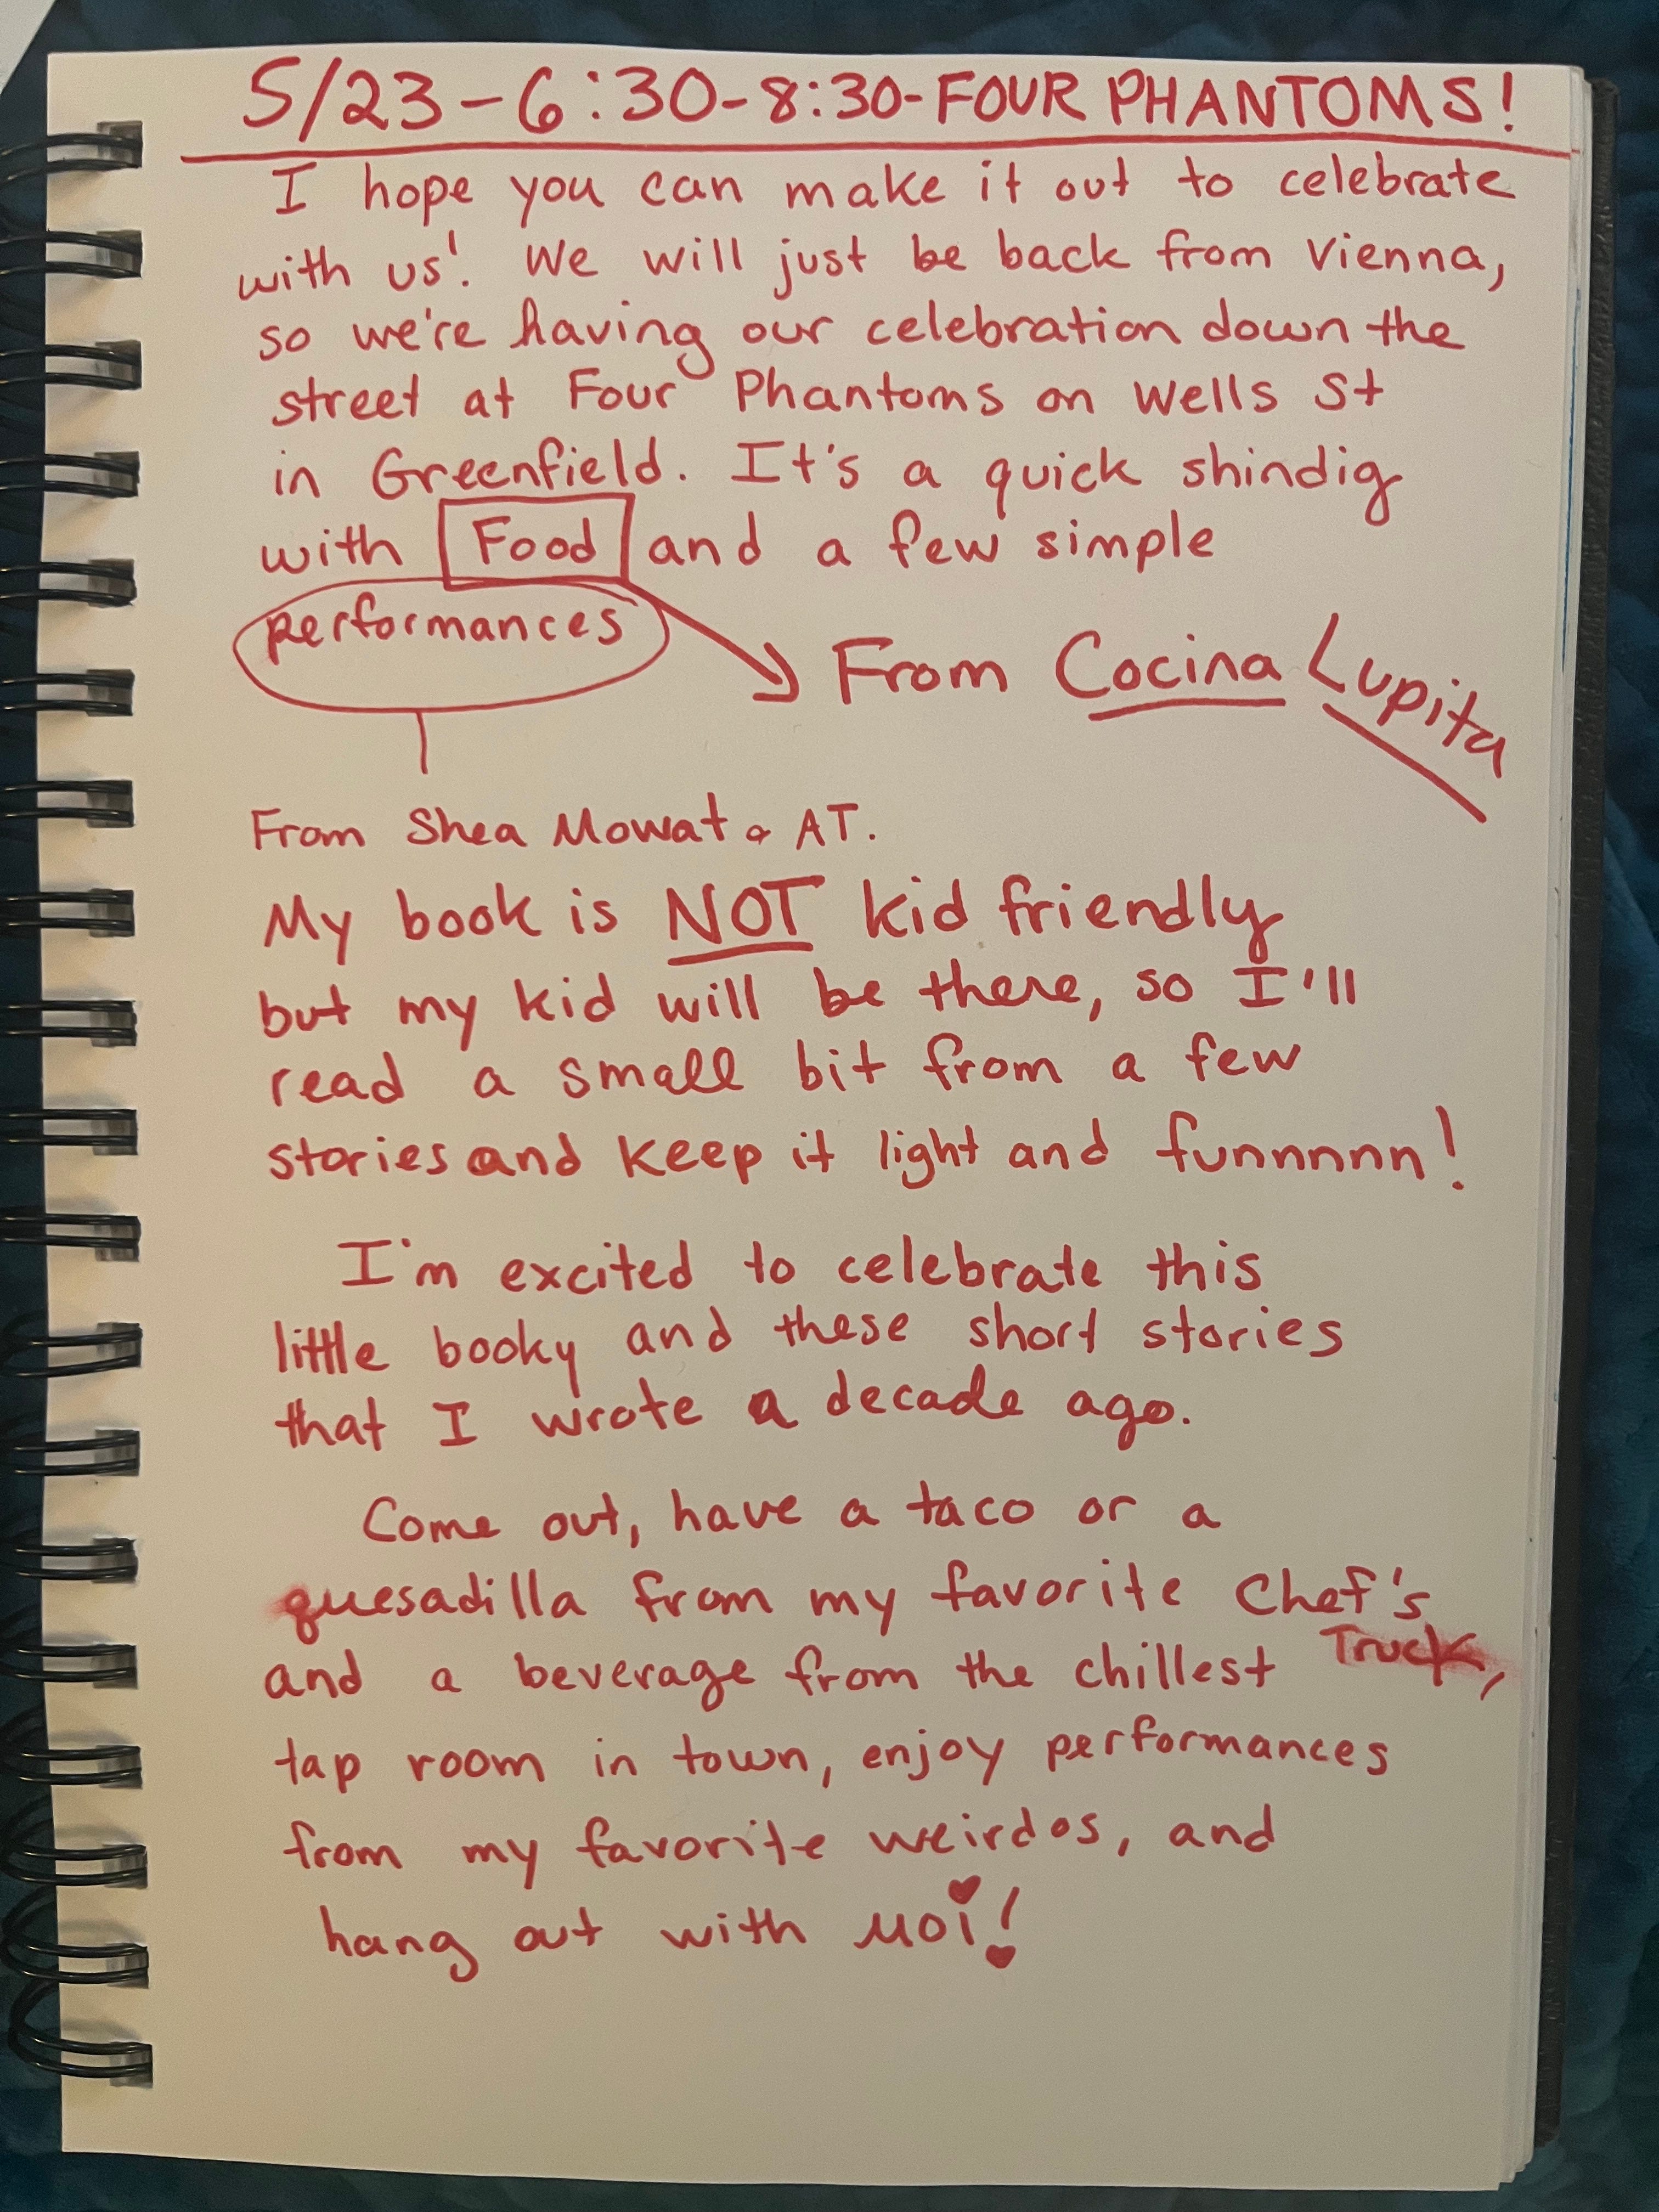 5/23-6:30-8:30-FOUR PHANTOMS!
I hope you can make it out to celebrate
with us! We will just be back from Vienna,
so we're having our celebration down the
street at Four Phantoms on Wells St
in Greenfield. It's a quick shindig
with Food and a few simple
performances
From Cocina Lupita
From Shea Mowat & AT.
My book is NOT kid friendly
but my kid will be there, so I'll
read a small bit from a few
stories and keep it light and funnnnnn!
I'm excited to celebrate this
little booky and these short stories
that I wrote a decade ago.
Come out, have a taco or a
quesadilla from my favorite Chef's
Truck,
and a beverage from the chillest
tap room in town, enjoy performances
from my favorite weirdos, and
hang out with moi!